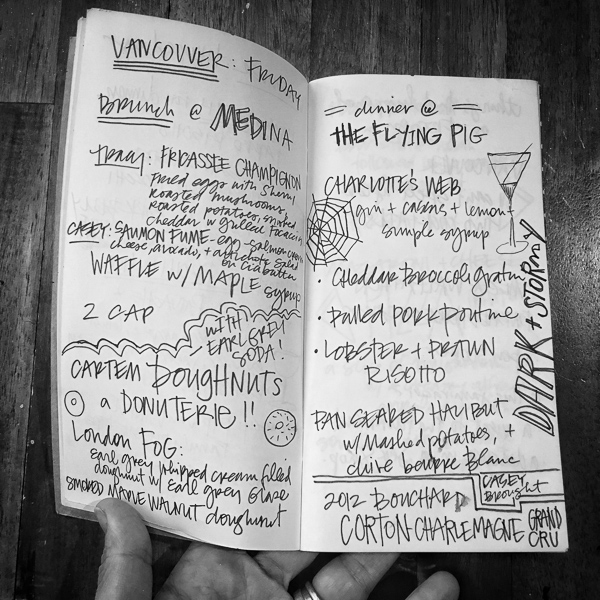 VANCOUVER: FRIDAY
Brunch @ MEDINA
Tracy: FRICASSÉE CHAMPIGNON
Fried eggs with Sherry
Roasted mushrooms,
Roasted potatoes, smoked
cheddar w grilled focaccia
CASEY: SAUMON FUME - egg - salmon
cheese, avocado, + artichoke salad
on ciabatta
WAFFLE w/ MAPLE syrup
2 CAP
WITH
EARL GREY
SODA!
CARTEM DOUGHNUTS
a DONUTERIE!!
LONDON FOG:
Earl grey whipped cream filled
doughnut w/ Earl grey glaze
SMOKED MAPLE WALNUT doughnut
dinner @
THE FLYING PIG
CHARLOTTE'S WEB
gin + cassis + lemon +
simple syrup
• Cheddar Broccoli gratin
• Pulled PORK poutine
• LOBSTER + PRAWN
RISOTTO
DARK + STORMY
PAN SEARED HALIBUT
w/ Mashed potatoes, +
chive beurre Blanc
CASEY
Brought
2012 BOUCHARD
CORTON CHARLEMAGNE
GRAND
CRU